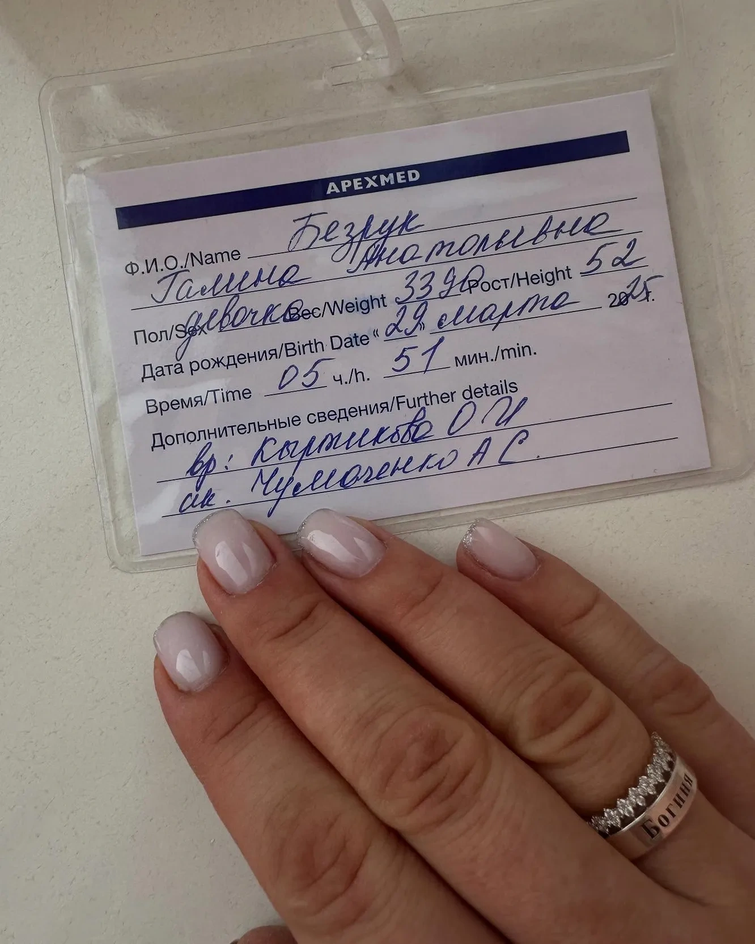 APEXMED
Ф.И.О./Name Безрук
Галина Анатольевна
Пол/Sex девочка Вес/Weight 3390 Рост/Height 52
Дата рождения/Birth Date “ 29 ” марта 2025г.
Время/Time 05 ч./h. 51 мин./min.
Дополнительные сведения/Further details
вр: О И
ак. Чумаченко А С.
Богиня